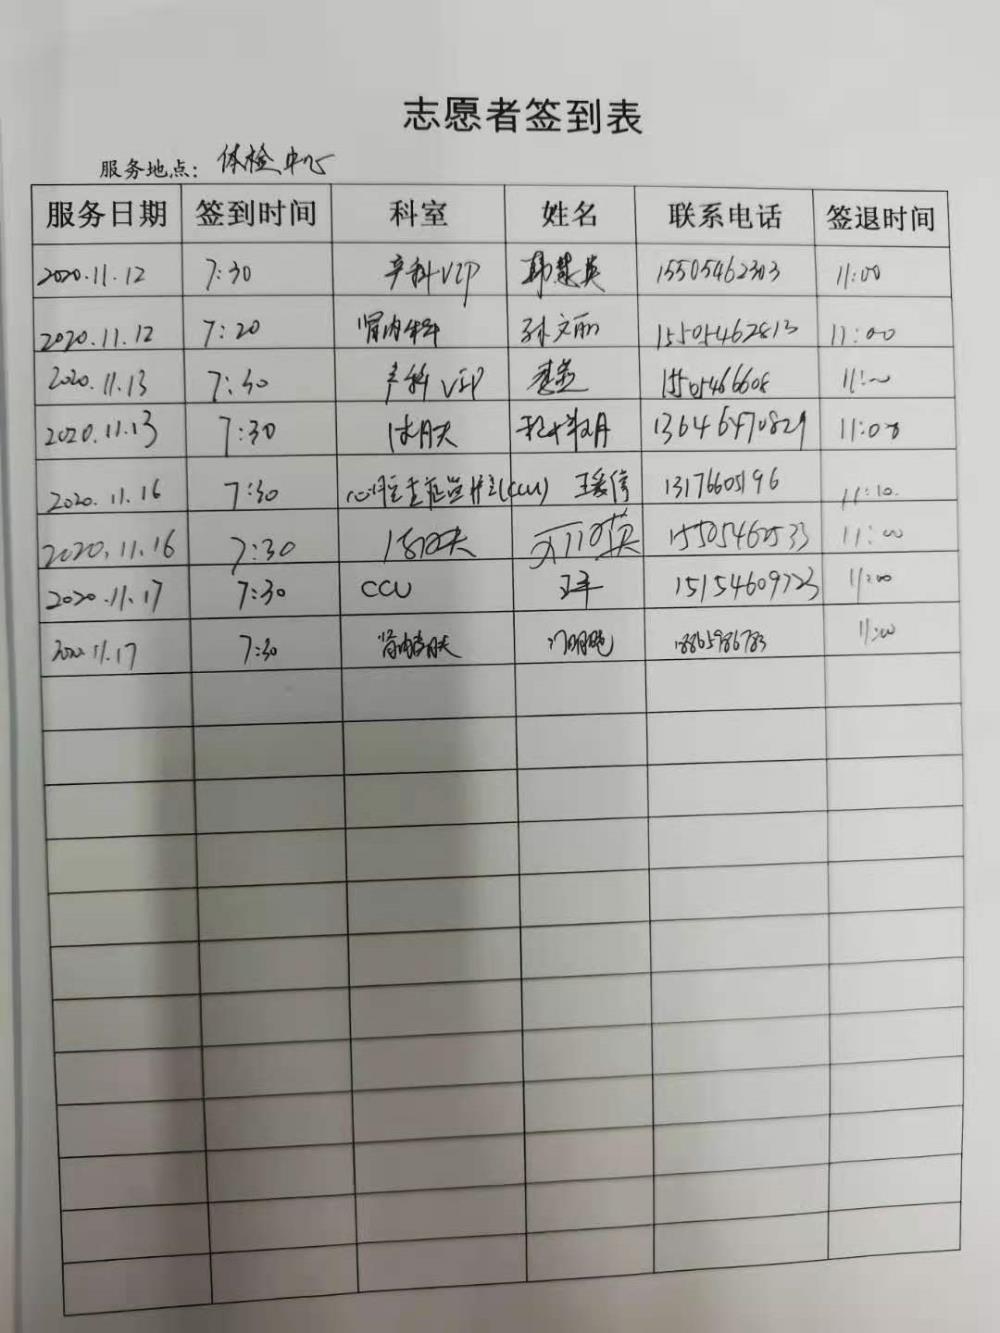 志愿者签到表
服务地点: 体检中心
服务日期 签到时间 科室 姓名 联系电话 签退时间
2020.11.12 7:30 产科VIP 韩慧英 15505462303 11:00
2020.11.12 7:20 肾内科 孙文丽 15505462813 11:00
2020.11.13 7:30 产科VIP 15505466608 11:00
2020.11.13 7:30 13646470829 11:00
2020.11.16 7:30 心脏重症监护室(CCU) 王爱信 13176605196 11:10
2020.11.16 7:30 15505460533 11:00
2020.11.17 7:30 CCU 15154609723 11:00
2020.11.17 7:30 18865986783 11:00